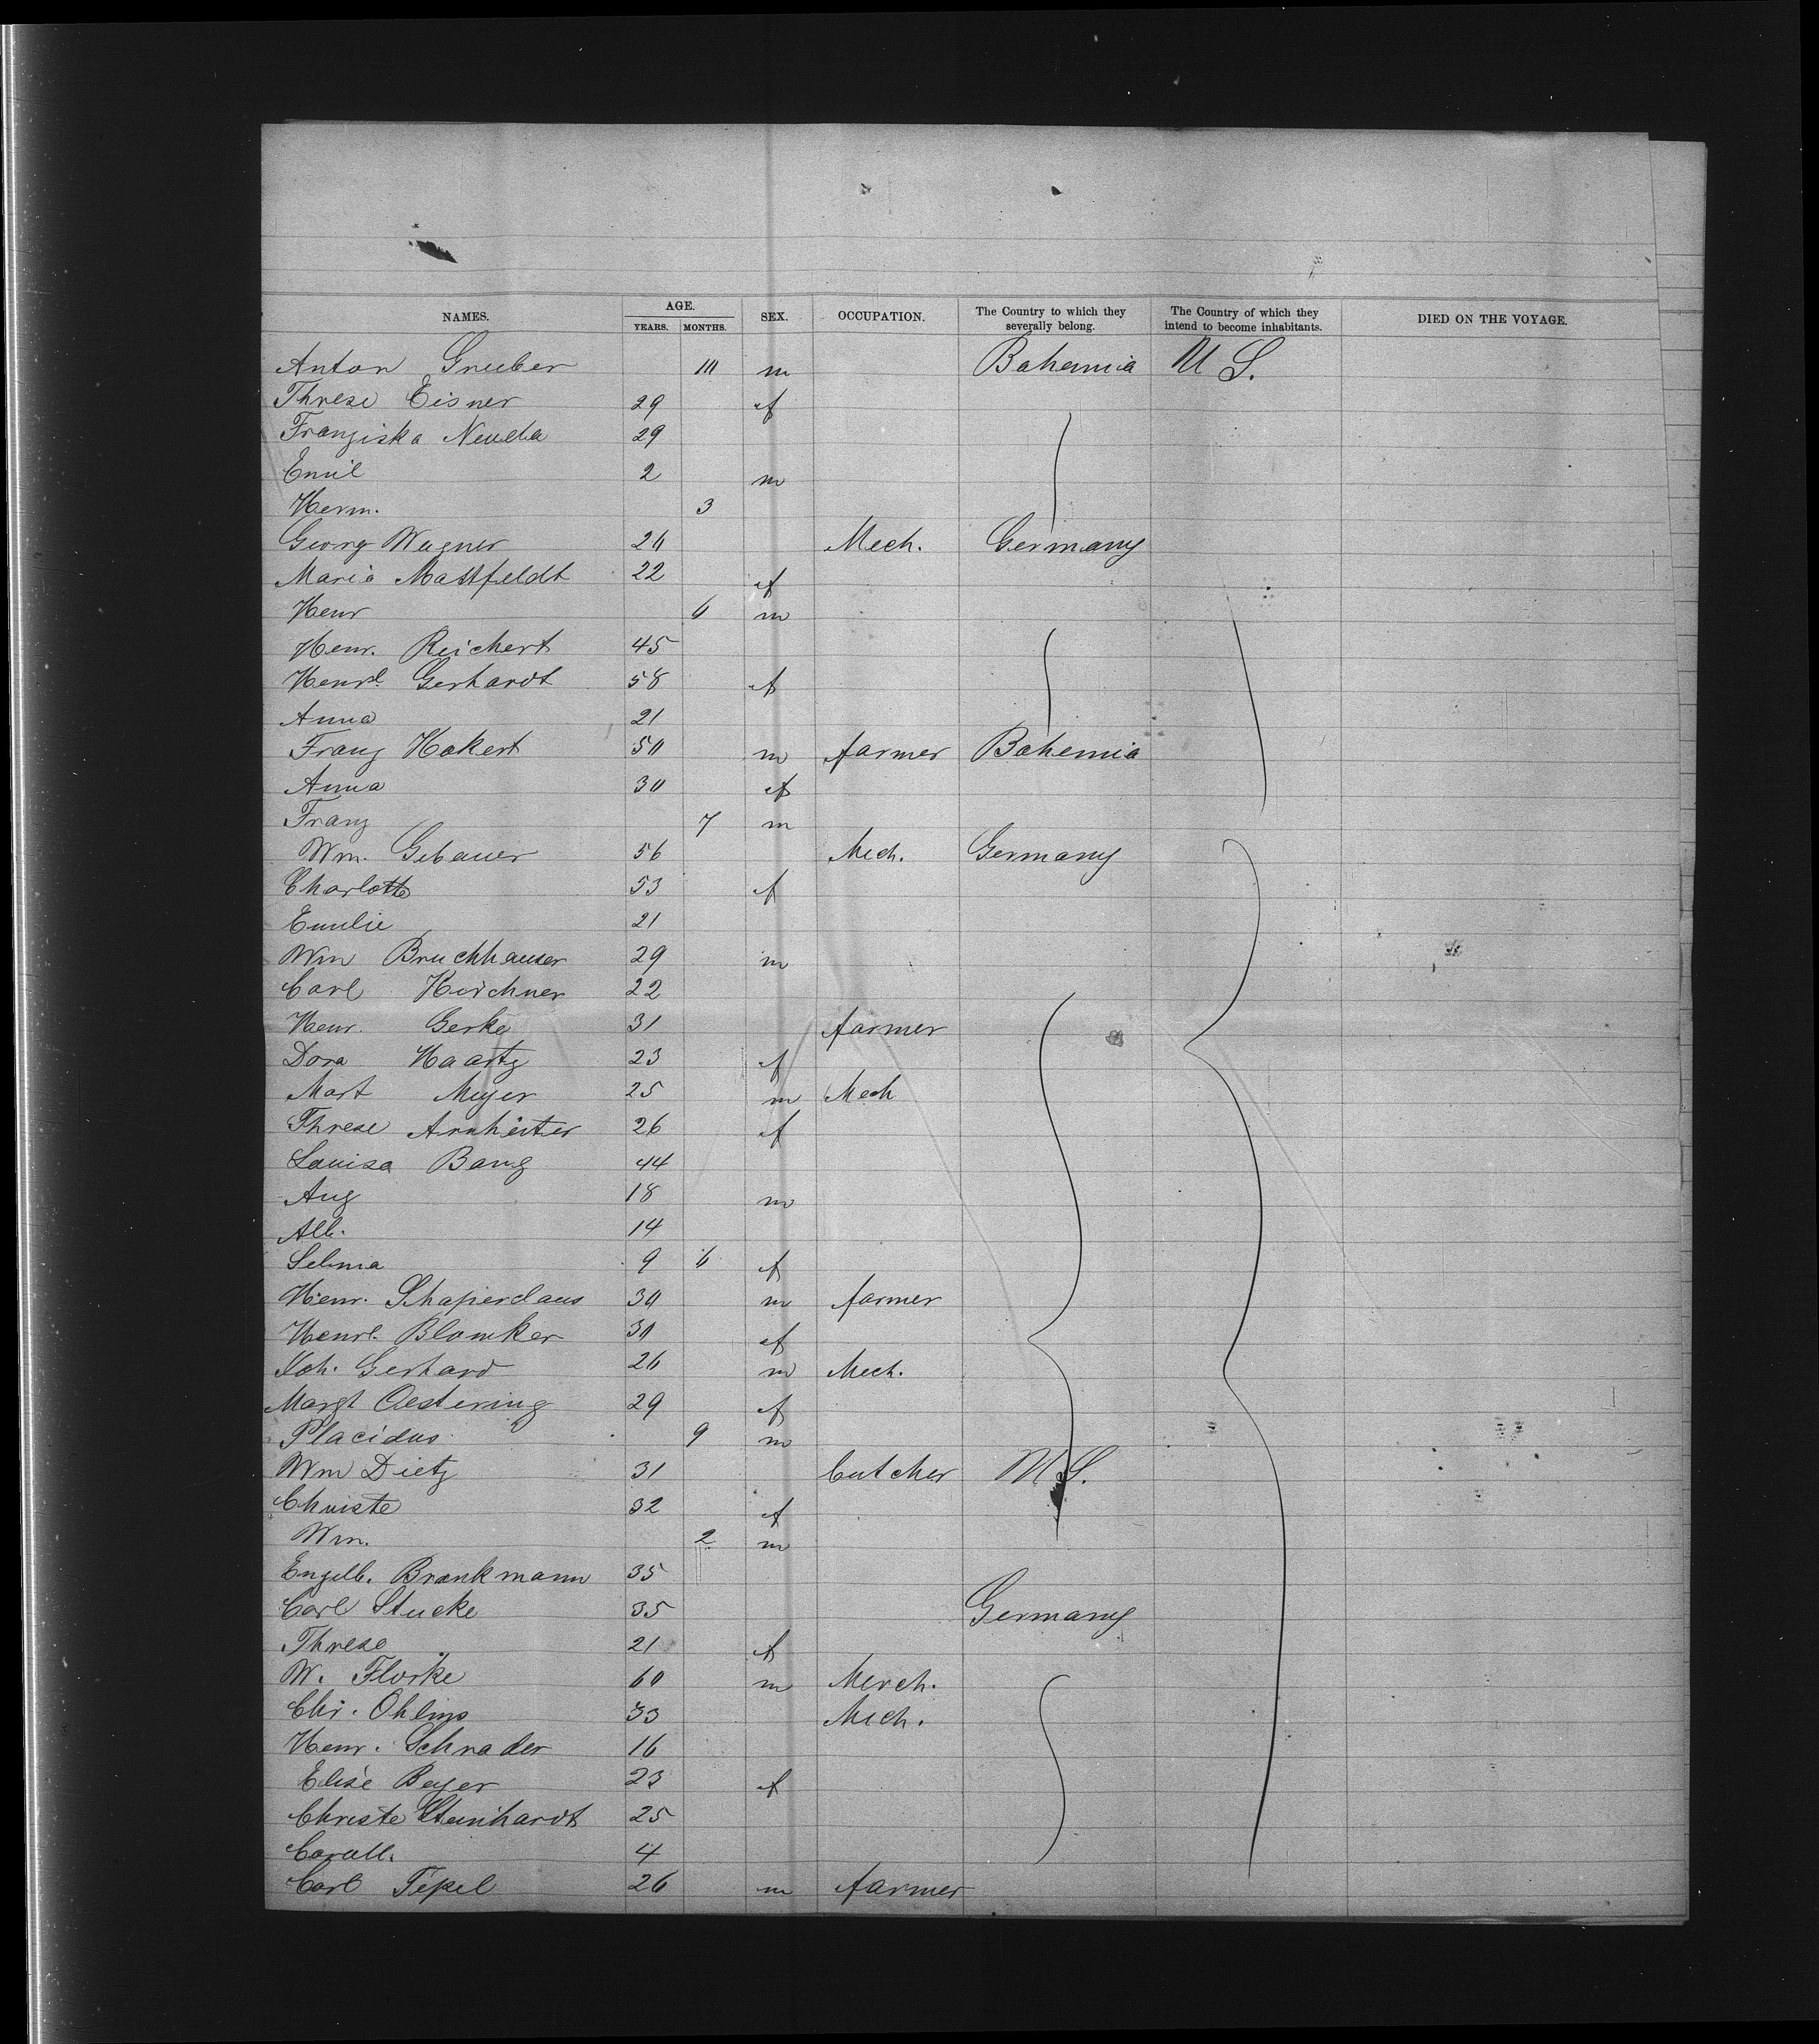 NAMES. AGE. YEARS. MONTHS. SEX. OCCUPATION. The Country to which they severally belong. The Country of which they intend to become inhabitants. DIED ON THE VOYAGE.
Anton Gruber m Bohemia U S.
Threse Eisner 29 f
Franziska Neuda 29
Emil 2 m
Herm. 3
Georg Wagner Mech. Germany
Maria Mattfeldt 22 f
Henr m
Henr. Reichert 45
Henrl. Gerhardt 58 f
Anna 21
Franz Hokert 50 m farmer Bohemia
Anna 30 f
Franz 7 m
Wm. Gebauer 56 Mech. Germany
Charlotte 53 f
Emilie 21
Wm Bruchhauser 29 m
Carl Kirchner 22
Henr. Gerke 31 farmer
Dora Haartz 23 f
Mart Meyer 25 m Mech
Threse Arnheiter 26 f
Louisa Bang 44
Aug 18 m
Alb. 14
Selma 9 6 f
Henr. Schaperclaus 30 m farmer
Henrl. Blomker 30 f
Joh. Gerhard 26 m Mech.
Margt Oestering 29 f
Placidus 9 m
Wm Dietz 31 butcher U.S.
Christe 32 f
Wm. 2 m
Engelb. Brankmann 35
Carl Stucke 35 Germany
Threse 21 f
W. Florke 60 m Merch.
Chr. Ohlms 33 Mech.
Henr. Schrader 16
Elise Beyer 23 f
Christe Steinhardt 25
4
Carl Tepel 26 m farmer